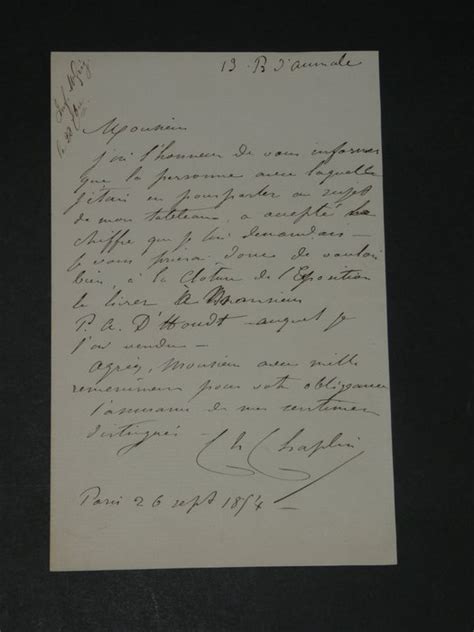 13 R d'aumale
Monsieur
j'ai l'honneur de vous informer
que la personne avec laquelle
j'étais en pourparler au sujet
de mon tableau, a accepté le
chiffre que je lui demandais —
je vous prierai donc de vouloir
bien, à la Cloture de l'Exposition
le livrer à Monsieur
P. A. D'Houdt auquel je
l'ai vendu —
agréez, Monsieur avec mille
remerciments pour votre obligeance
l'assurance de mes sentiments
distingués
Ch Chaplin
Paris 26 sept 1854 —